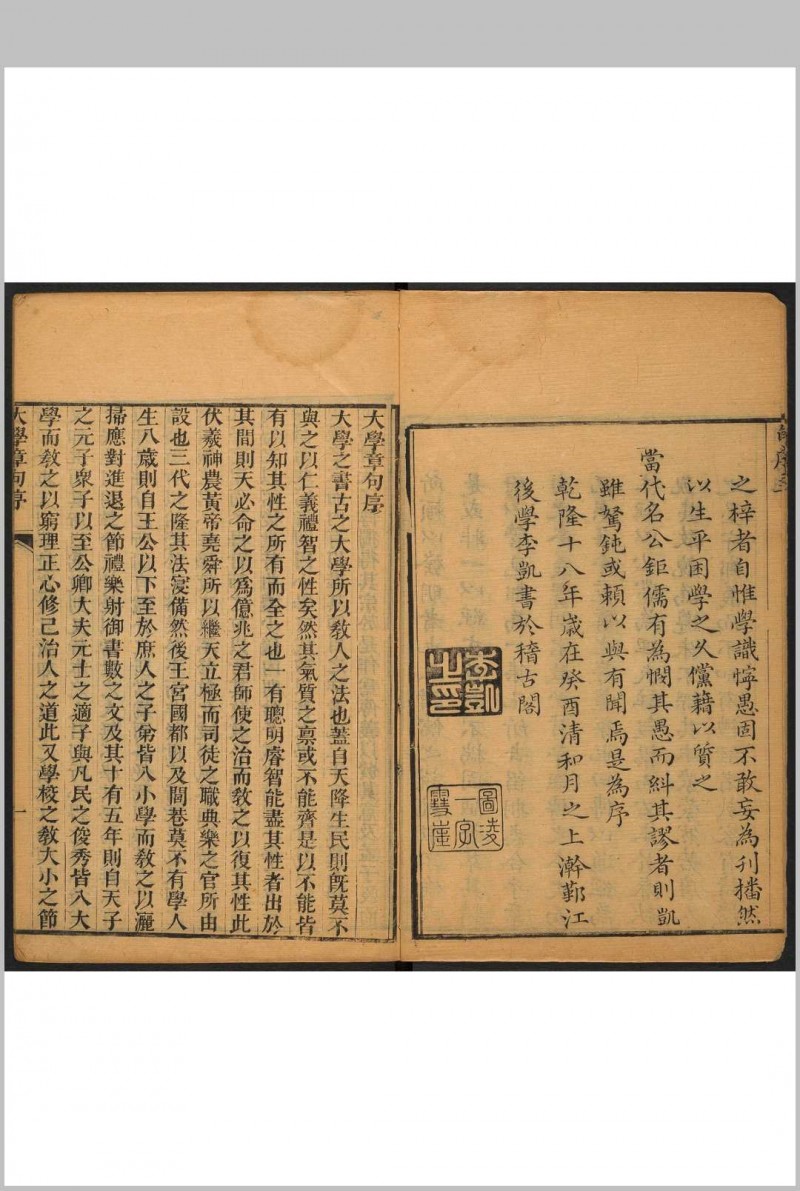 之梓者自惟學識懧愚固不敢妄為刊播然
以生平困學之久儻藉以質之
當代名公鉅儒有為憫其愚而糾其謬者則凱
雖駑鈍或頼以與有聞焉是為序
乾隆十八年歲在癸酉清和月之上澣鄞江
後學李凱書於稽古閣
李凱之印
大學章句序
大學之書古之大學所以敎人之法也蓋自天降生民則旣莫不
與之以仁義禮智之性矣然其氣質之稟或不能齊是以不能皆
有以知其性之所有而全之也一有聰明睿智能盡其性者出於
其間則天必命之以爲億兆之君師使之治而敎之以復其性此
伏羲神農黃帝堯舜所以繼天立極而司徒之職典樂之官所由
設也三代之隆其法寖備然後王宮國都以及閭巷莫不有學人
生八歲則自王公以下至於庶人之子弟皆入小學而敎之以灑
掃應對進退之節禮樂射御書數之文及其十有五年則自天子
之元子衆子以至公卿大夫元士之適子與凡民之俊秀皆入大
學而敎之以窮理正心修己治人之道此又學校之敎大小之節
大學章句序
一